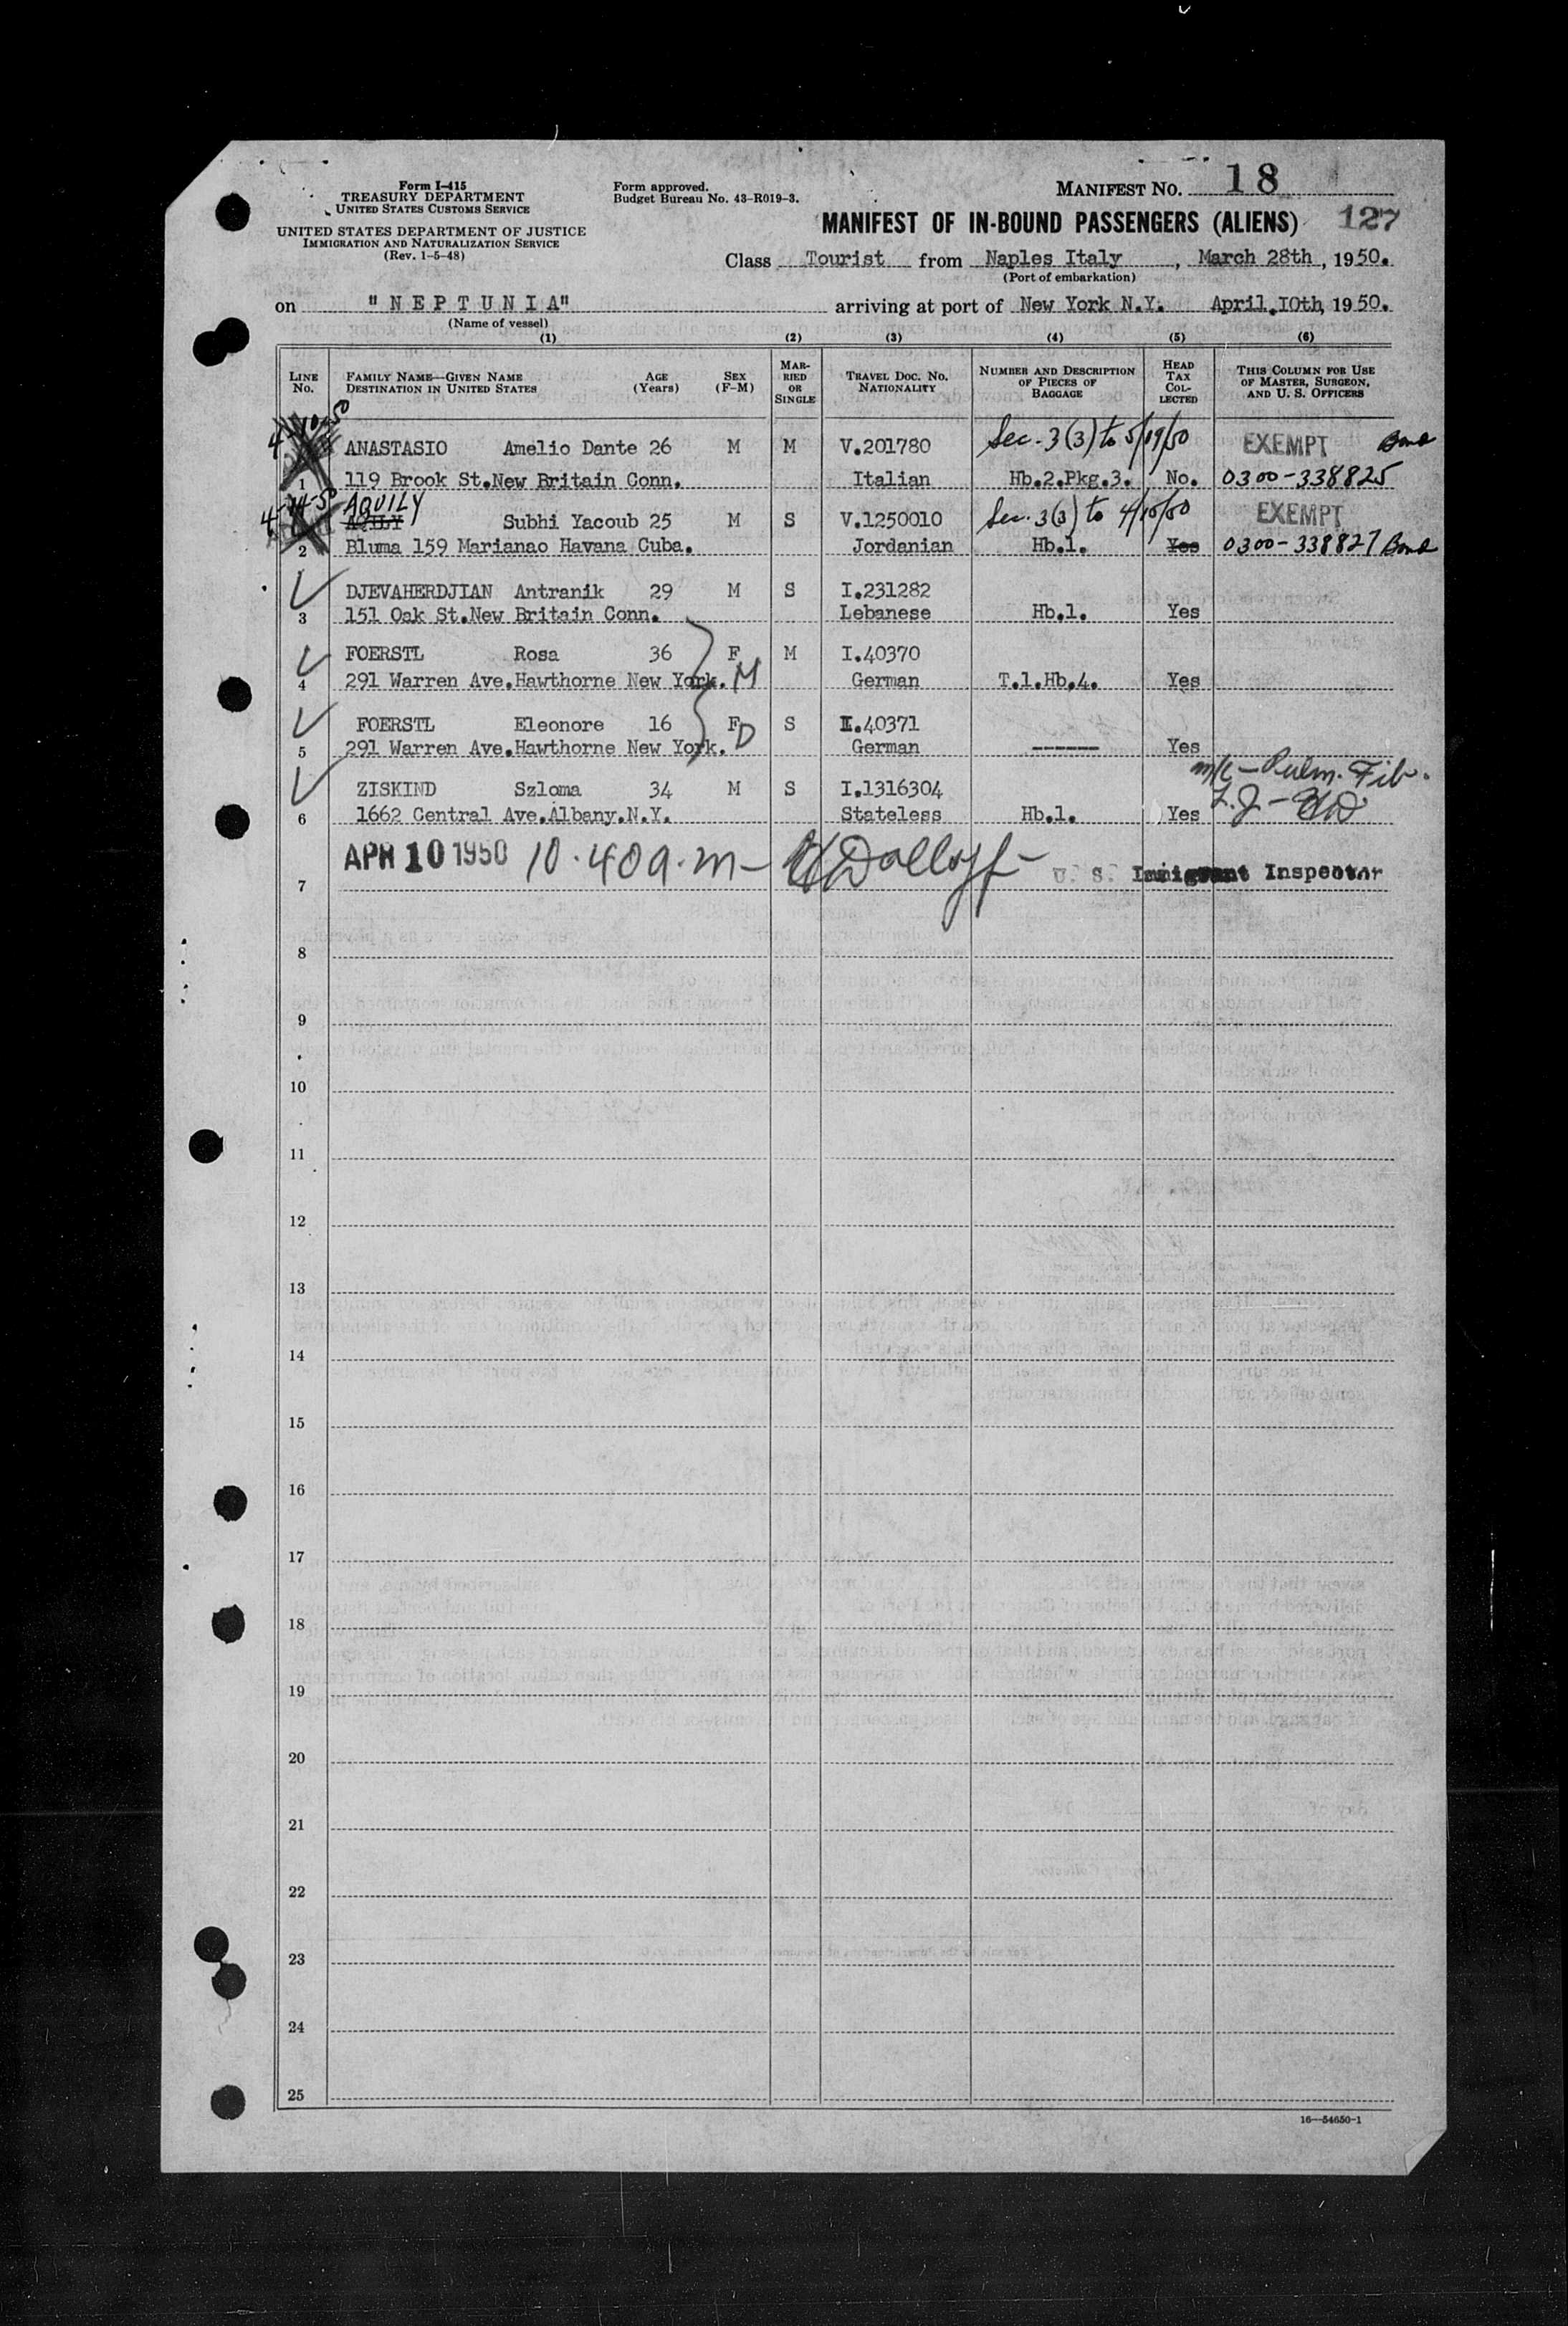 Form I-415
TREASURY DEPARTMENT
UNITED STATES CUSTOMS SERVICE
UNITED STATES DEPARTMENT OF JUSTICE
IMMIGRATION AND NATURALIZATION SERVICE
(Rev. 1-5-48)
Form approved.
Budget Bureau No. 43-R019-3.
MANIFEST NO. 18
MANIFEST OF IN-BOUND PASSENGERS (ALIENS) 127
Class Tourist from Naples Italy, March 28th, 1950.
(Port of embarkation)
on "NEPTUNIA" arriving at port of New York N.Y. April.10th, 1950.
(Name of vessel)
(1) (2) (3) (4) (5) (6)
LINE No. FAMILY NAME—GIVEN NAME DESTINATION IN UNITED STATES AGE (Years) SEX (F-M) MARRIED OR SINGLE TRAVEL DOC. NO. NATIONALITY NUMBER AND DESCRIPTION OF PIECES OF BAGGAGE HEAD TAX COLLECTED THIS COLUMN FOR USE OF MASTER, SURGEON, AND U. S. OFFICERS
4-10-50
ANASTASIO Amelio Dante 26 M M V.201780 Sec. 3(3) to 5/19/50 EXEMPT Bond
1 119 Brook St.New Britain Conn. Italian Hb.2.Pkg.3. No. 0300-338825
AQUILY
Subhi Yacoub 25 M S V.1250010 Sec. 3(3) to 4/15/50 EXEMPT
2 Bluma 159 Marianao Havana Cuba. Jordanian Hb.1. Yes 0300-338827 Bond
DJEVAHERDJIAN Antranik 29 M S I.231282
3 151 Oak St.New Britain Conn. Lebanese Hb.1. Yes
FOERSTL Rosa 36 F M I.40370
4 291 Warren Ave.Hawthorne New York. M German T.1.Hb.4. Yes
FOERSTL Eleonore 16 F S I.40371
5 291 Warren Ave.Hawthorne New York. D German ------ Yes
ZISKIND Szloma 34 M S I.1316304 m/c - Pulm. Fib.
6 1662 Central Ave.Albany.N.Y. Stateless Hb.1. Yes
APR 10 1950 10.40 a.m - U. S. Immigrant Inspector
7
8
9
10
11
12
13
14
15
16
17
18
19
20
21
22
23
24
25
16—54650-1